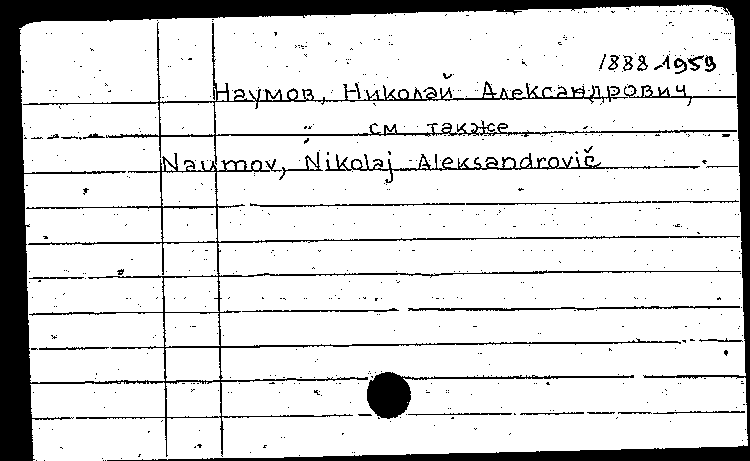 1888-1959
Наумов, Николай Александрович,
см также
Naumov, Nikolaj Aleksandrovič